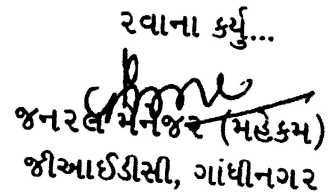 રવાના કર્યુ...
જનરલ મેનેજર (મહેકમ)
જીઆઈડીસી, ગાંધીનગર